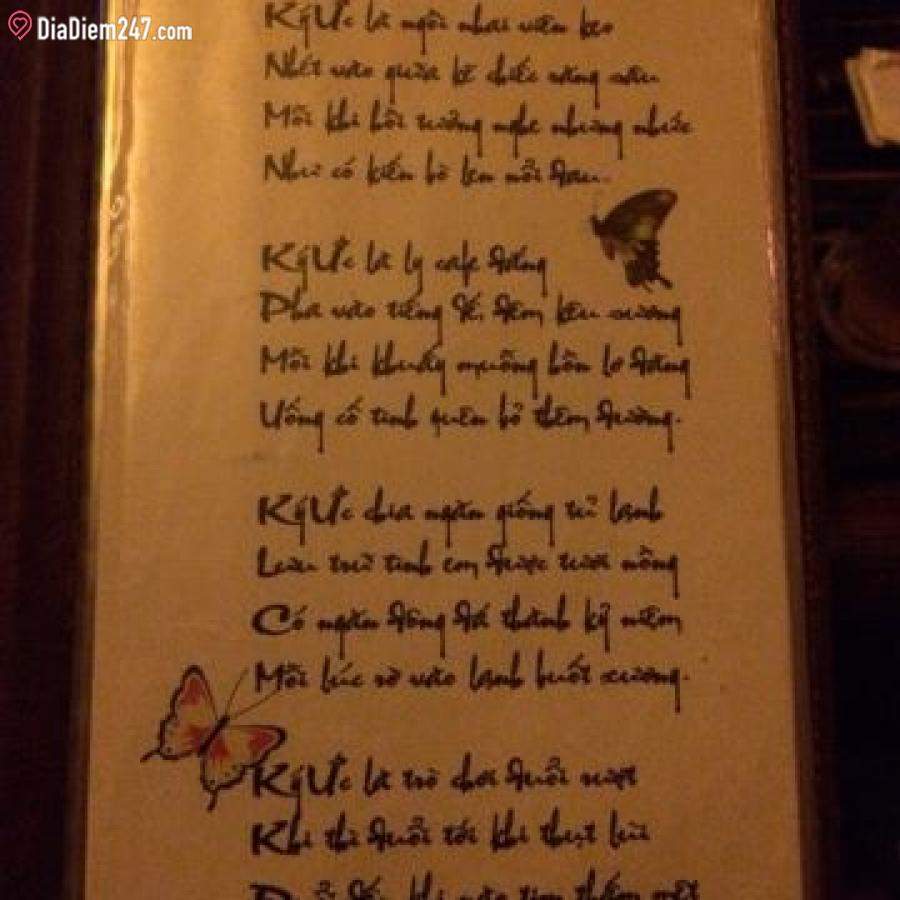 DiaDiem247.com
Ký Ức là ngồi nhai viên kẹo
Nhét vào giữa kẽ chiếc răng sâu
Mỗi khi hồi tưởng nghe nhưng nhức
Như có kiến bò lên nỗi đau.
Ký Ức là ly cafe đắng
Pha vào tiếng dế, đêm, kêu sương
Mỗi khi khuấy muỗng hồn lơ đãng
Uống cố tình quên bỏ thêm đường.
Ký Ức chia ngăn giống tủ lạnh
Lưu trữ tình em được tươi nồng
Có ngăn đông đá thành kỷ niệm
Mỗi lúc rờ vào lạnh buốt xương.
Ký Ức là trò chơi đuổi rượt
Khi thì đuổi tới khi thụt lùi
khi vào tim